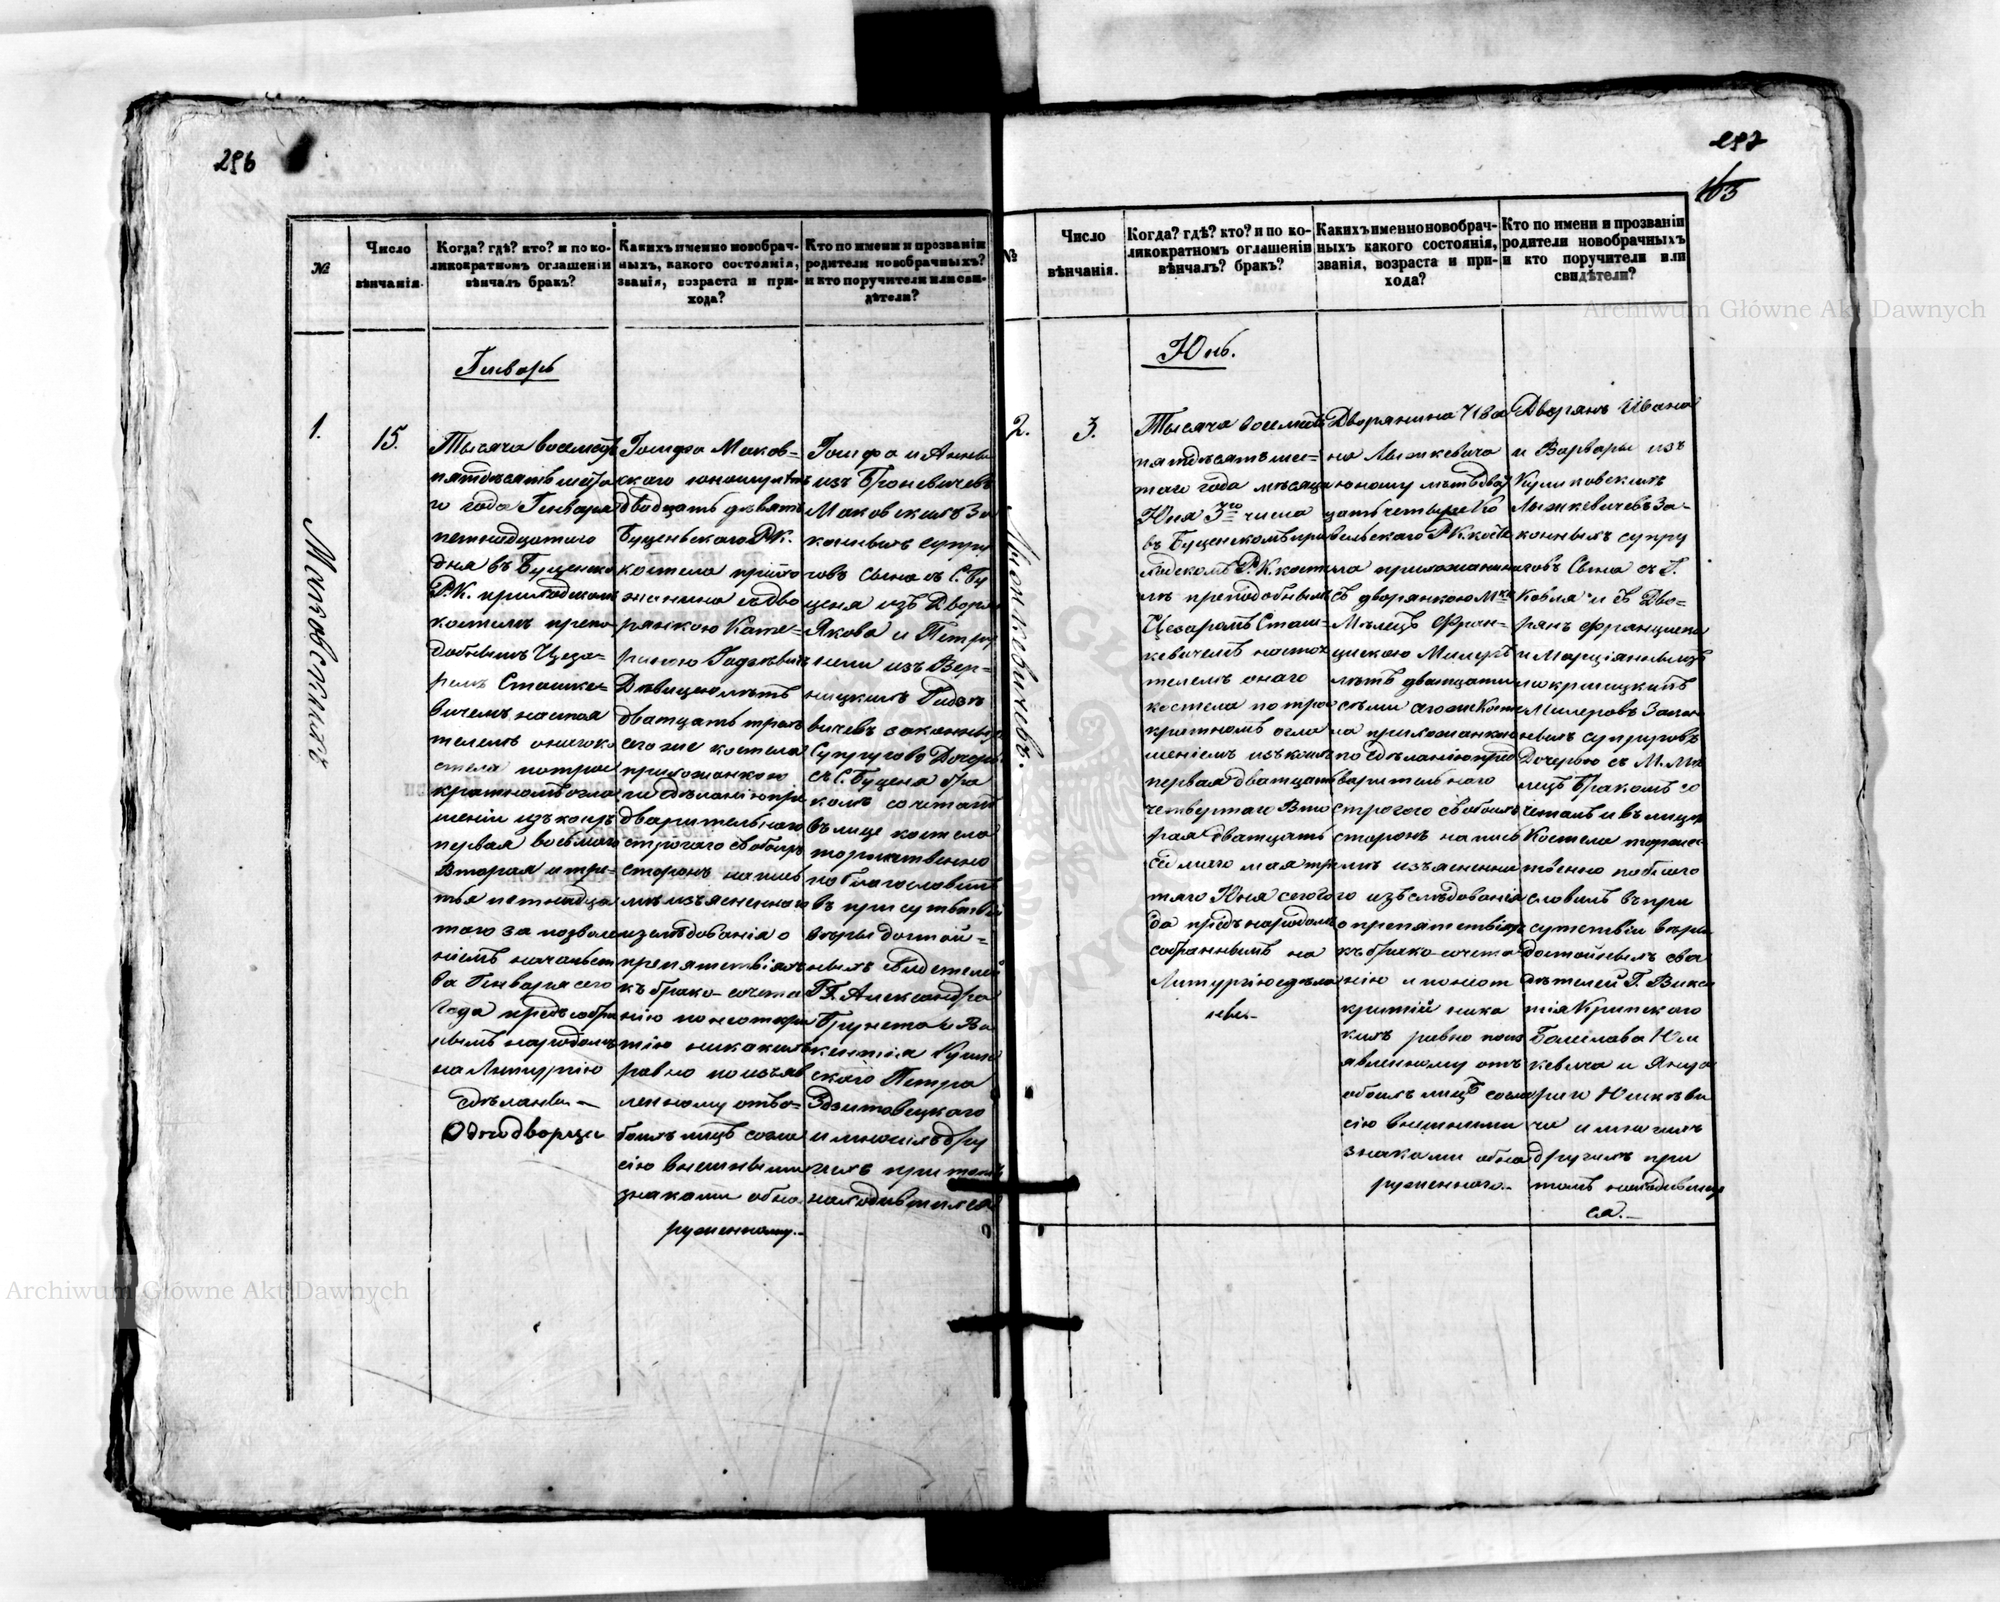 296
№
Число
вѣнчанія.
Когда? гдѣ? кто? и по ко-
ликократномъ оглашеніи
вѣнчалъ бракъ?
Какихъ именно новобрач-
ныхъ, какого состоянія,
званія, возраста и при-
хода?
Кто по имени и прозваніи
родители новобрачныхъ?
и кто поручители или сви-
дѣтели?
Генварь
1.
15.
Маковскихъ
Тысяча восемьсотъ
пятдесятъ шестаго
го года Генваря
пятнадцатого
дня въ Буценско
Р.К. приходском
костелѣ препо
добнымъ Цеза-
ремъ Сташке-
вичемъ настоя
телемъ онаго ко
стела по трое
кратномъ огла
шеніи изъ коихъ
первая восьмаго
Вторая и тре-
тья пятнадца
того за позволе
ніемъ начальст
ва Генваря сего
года предъ собра
нымъ народомъ
на Литургію
дѣланы.—
Однодворцы
Іосифа Маков-
скаго юношу лѣтъ
двадцать девять
Буценьскаго Р.К.
костела прихо
жанина съ Дво
рянкою Кате-
риною
Дѣвицею лѣтъ
двадцать трехъ
сего же костела
прихожанкою
по сдѣланію пре
дварительнаго
строгаго обоихъ
сторонъ на пись
мѣ изъясненнаго
изслѣдованія о
препятствіяхъ
къ брако-сочета
нію по неоткры
тію никакихъ
равно по изъяв
ленному отъ о-
боихъ лицъ согла
сію внешными
знаками обна
руженному.—
Іосифа и Анны
изъ Броневичевъ
Маковскихъ За
конныхъ супру
говъ сына съ С. Бу
ценя изъ Дворян
Якова и Петру
нели изъ Вер-
ницкихъ
вичевъ законных
Супруговъ Дочерь
съ С. Буценя бра
комъ сочеталъ
въ лице костела
торжественно
поблагословилъ
въ присутствіи
вѣры достой-
ныхъ свидетелей
ГГ. Александра
Брунета Ви
кентія
скаго Петра
Здзитовецкого
и многихъ дру
гихъ при томъ
находившихся
297
165
№
Число
вѣнчанія.
Когда? гдѣ? кто? и по ко-
ликократномъ оглашеніи
вѣнчалъ? бракъ?
Какихъ именно новобрач-
ныхъ какого состоянія,
званія, возраста и при-
хода?
Кто по имени и прозваніи
родители новобрачныхъ
и кто поручители или
свидѣтели?
Юнь.
2.
3.
Лыжкевичевъ.
Тысяча восемьсотъ
пятдесятъ шес-
таго года мѣсяца
Юня 3го числа
въ Буценскомъ при
ходскомъ Р.К. косте
лѣ преподобнымъ
Цезаромъ Сташ-
кевичемъ настоя
телемъ онаго
костела по трое
кратномъ огла
шеніемъ изъ коихъ
первая двадцать
четвертаго Вто
рая двадцать
седмаго мая тре
таго Юня сего го
да предъ народомъ
собраннымъ на
Литургію сдѣла
ны.—
Дворянина Ива
на Лыжкевича
юношу лѣтъ двад
цать четыре Ко
вельскаго Р.К. косте
ла прихожанина
съ дворянкою Мко
Мѣлецъ Фран-
цискою Милеръ
лѣтъ двадцати
семи аго же Косте
ла прихожанкою
по сдѣланію пред
варительнаго
строгого обоихъ
сторонъ на пись
мѣ изъясненна
го изъслѣдованія
о препятствіяхъ
къ брако-сочета
нію и по неот
крытій ника
кихъ равно по из
явленному отъ
обоихъ лицъ согла
сію внешними
знаками обна
руженнаго.—
Дворянъ Ивана
и Варвары изъ
Куликовскихъ
Лыжкевичевъ За-
конныхъ супру
говъ Сына съ Г.
Ковля и съ Дво-
рянъ Францишка
и Марціянны изъ
покрошицкихъ
Милеровъ Закон
ныхъ супруговъ
Дочерью съ М. Мѣ
лецъ Бракомъ со
четалъ и въ лице
Костела торжес
твенно поблаго
словилъ въ при
сутствіи вѣры
достойныхъ сви
дѣтелей Г. Викен
тія Крипского
Болеслава Юш
кевича и

ча и многихъ
другихъ при
томъ находивших
ся.—
Archiwum Główne Akt Dawnych
Archiwum Główne Akt Dawnych